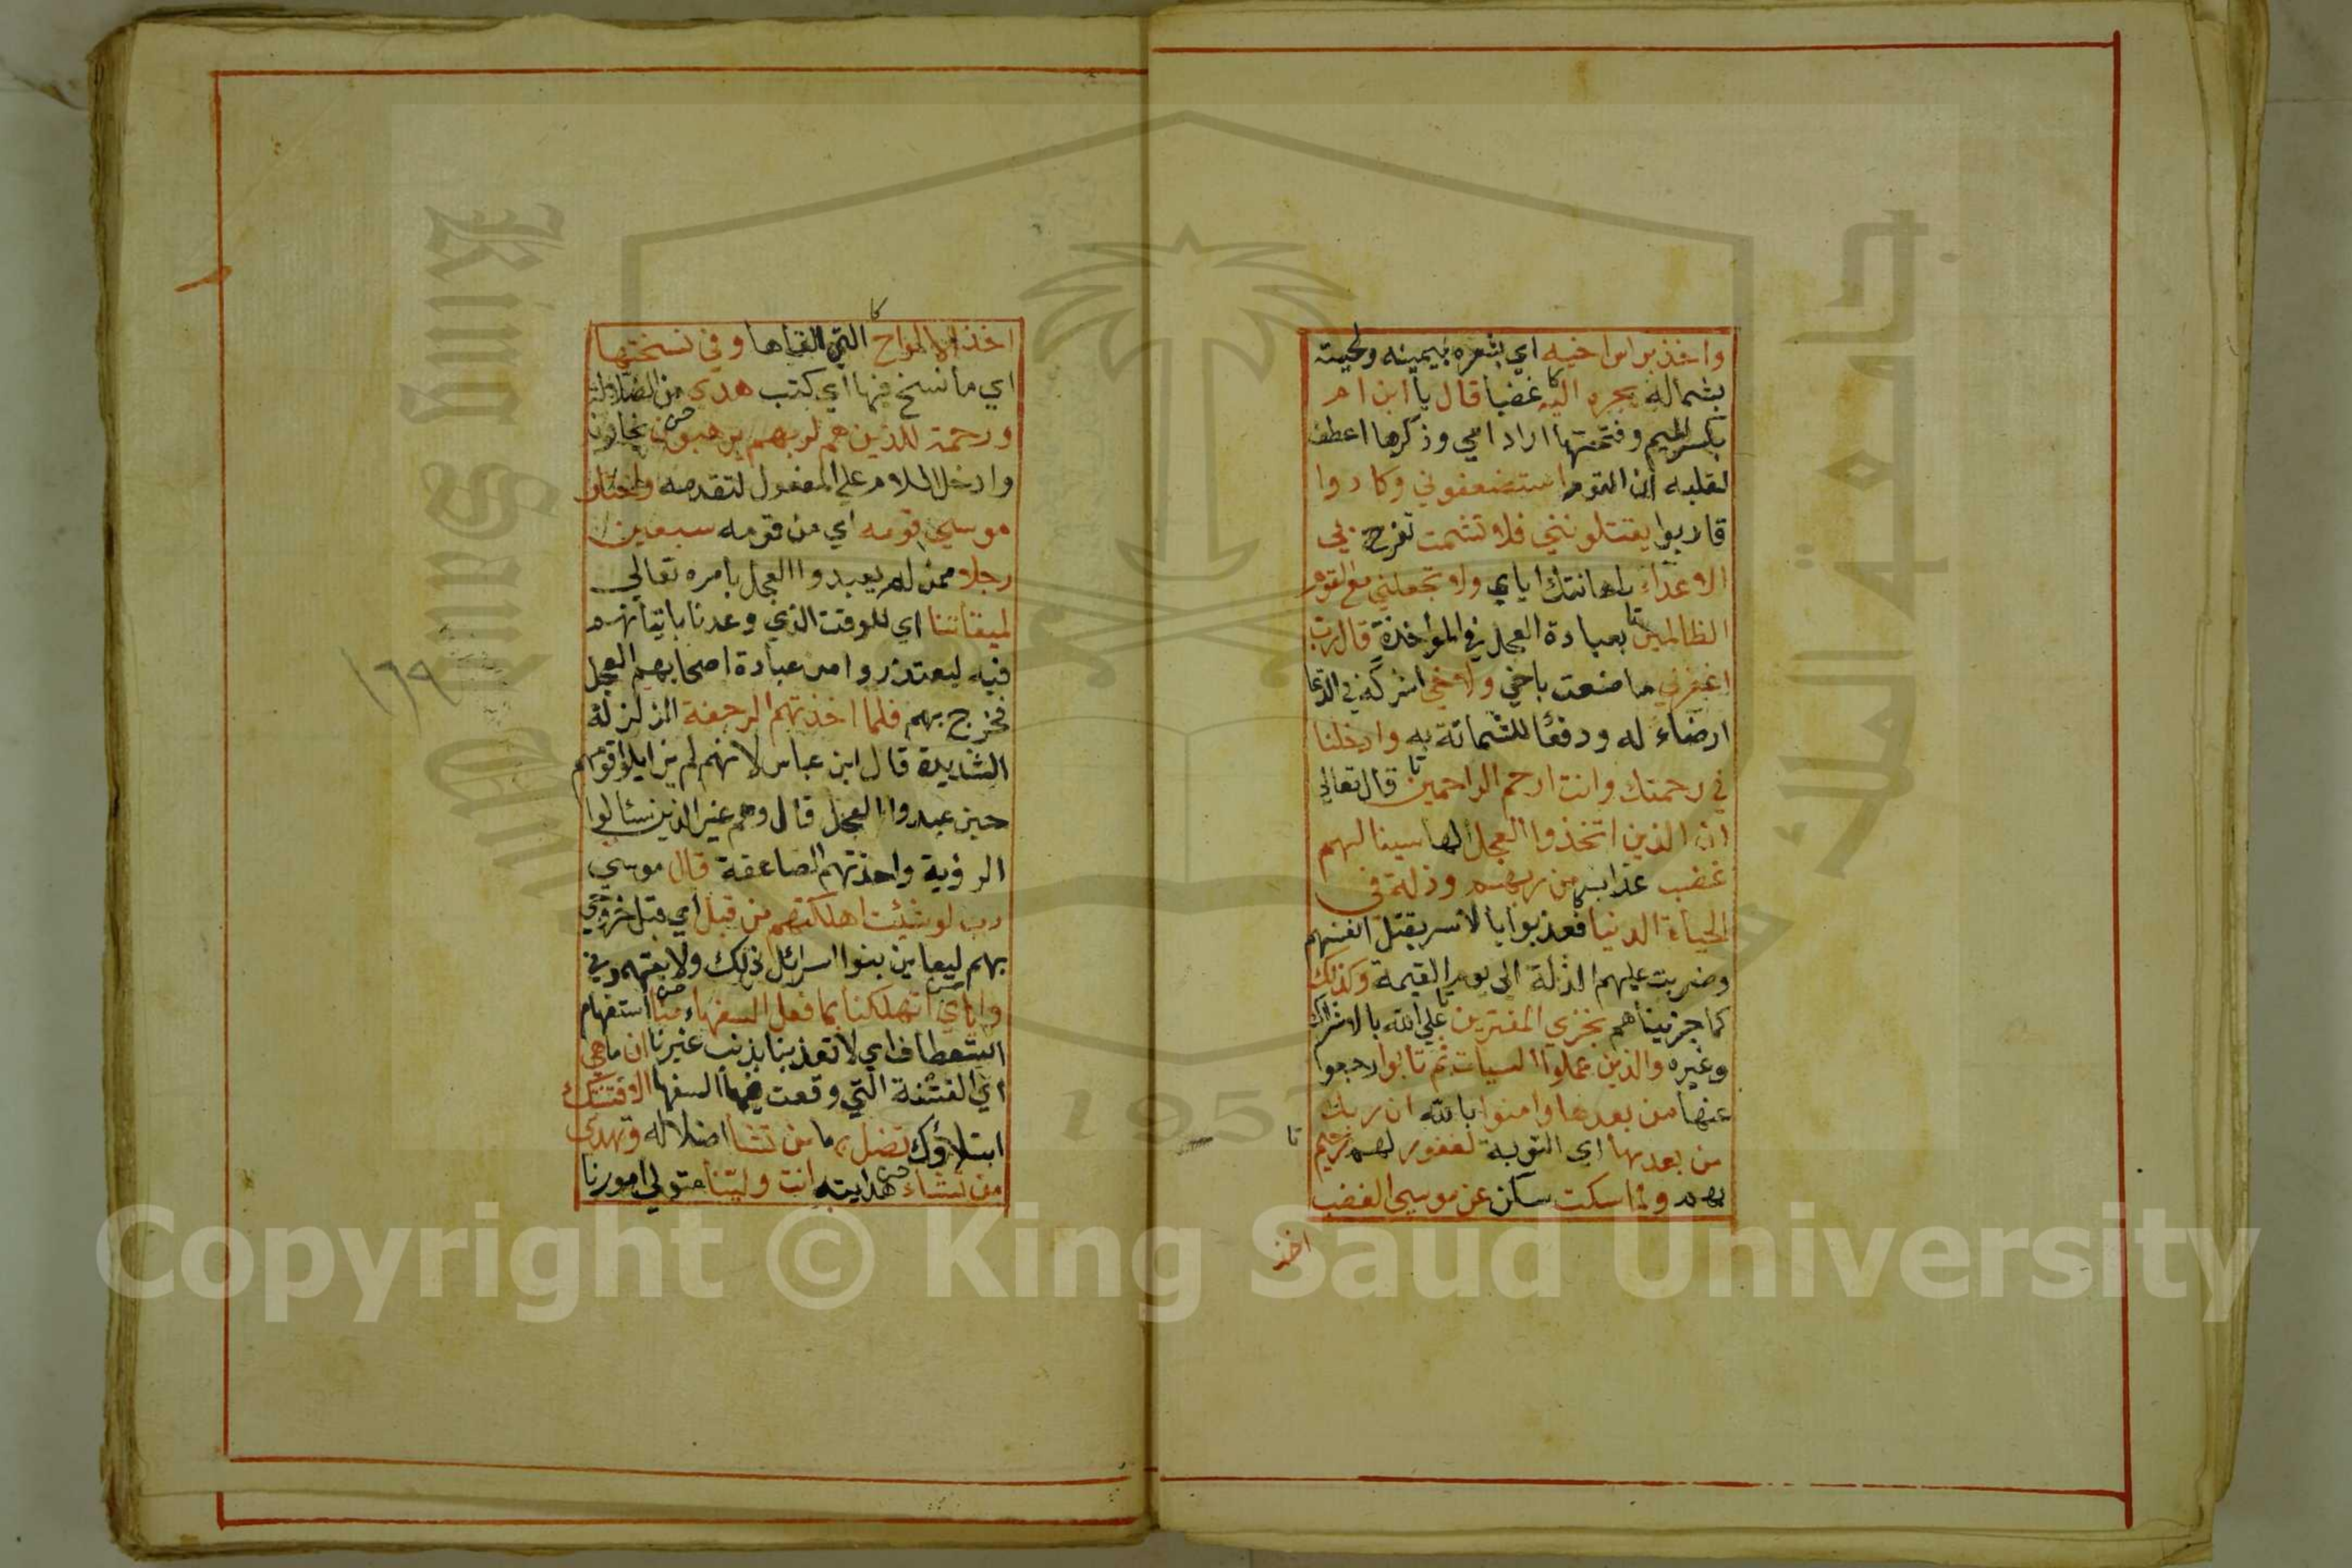 واخذ براس اخيه اي بشعره بيمينه ولحيته
بشماله يجره اليه غضبا قال يا ابن ام
بكسر الميم وفتحها اراد امي وذكرها اعطف
لقلبه ان القوم استضعفوني وكادوا
قاربوا يقتلونني فلا تشمت تفرح بي
الاعداء باهانتك اياي ولا تجعلني مع القوم
الظالمين بعبادة العجل في المواخذة قال رب
اغفر لي ما صنعت باخي ولاخي اشركه في الدعا
ارضاء له ودفعا للشماتة به وادخلنا
في رحمتك وانت ارحم الراحمين قال تعالى
ان الذين اتخذوا العجل الها سينالهم
غضب عذاب من ربهم وذلة في
الحياة الدنيا فعذبوا بالامر بقتل انفسهم
وضربت عليهم الذلة الى يوم القيمة وكذلك
كما جزيناهم نجزي المفترين على الله بالاشراك
وغيره والذين عملوا السيات ثم تابوا رجعوا
عنها من بعدها وامنوا بالله ان ربك
من بعدها اي التوبة لغفور لهم رحيم
بهم ولما سكت سكن عن موسى الغضب
اخذ
اخذ الالواح التي القاها وفي نسختها
اي ما نسخ فيها اي كتب هدى من الضلالة
ورحمة للذين هم لربهم يرهبون يخافون
وادخل اللام على المفعول لتقدمه واختار
موسى قومه اي من قومه سبعين
رجلا ممن لم يعبدوا العجل بامره تعالى
لميقاتنا اي للوقت الذي وعدنا باتيانهم
فيه ليعتذروا من عبادة اصحابهم العجل
فخرج بهم فلما اخذتهم الرجفة الزلزلة
الشديدة قال ابن عباس لانهم لم يزايلوا قومهم
حين عبدوا العجل قال وهم غير الذين سئالوا
الرؤية واخذتهم الصاعقة قال موسى
رب لو شئت اهلكتهم من قبل اي قبل خروجي
بهم ليعاين بنوا اسرائل ذلك ولا يتهموني
واياي اتهلكنا بما فعل السفهاء منا استفهام
استعطاف اي لا تعذبنا بذنب غيرنا ان ما هي
اي الفتنة التي وقعت فيها السفها الا فتنتك
ابتلاؤك تضل بها من تشا اضلاله وتهدي
من تشاء هدايته انت ولينا متولي امورنا
١٦٩
1957
Copyright © King Saud University